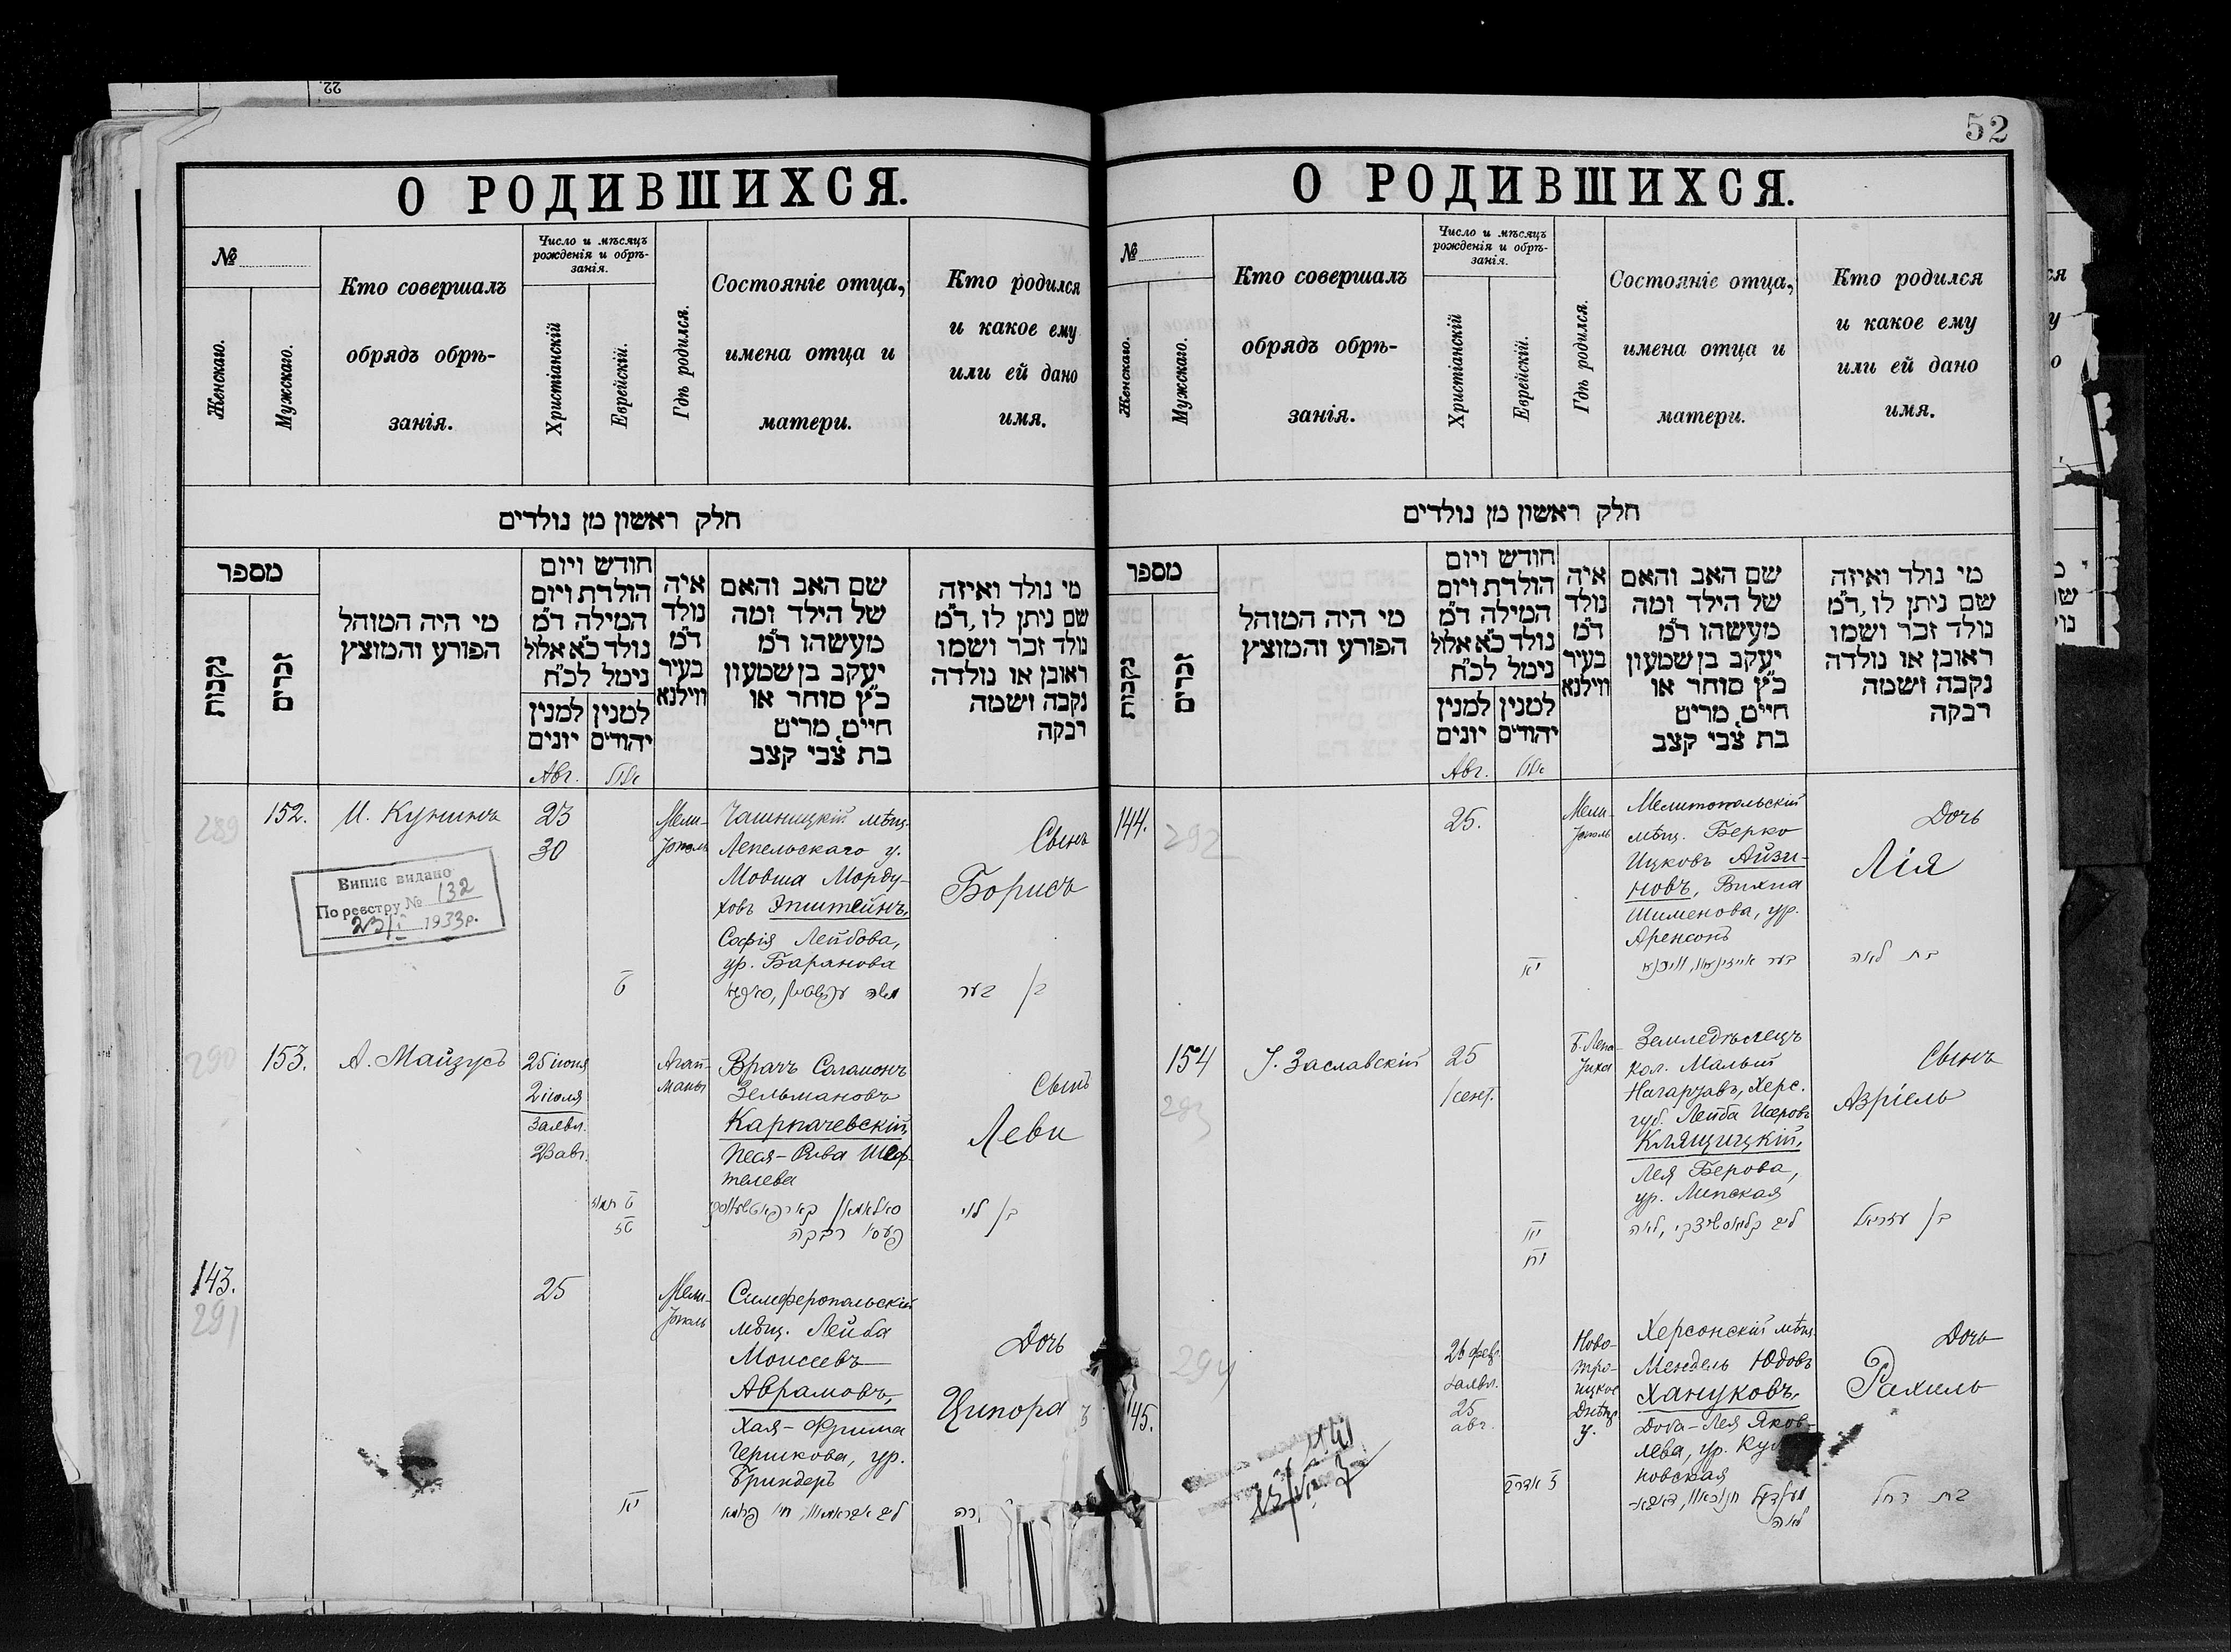 22.
О РОДИВШИХСЯ.
№
Женскаго.
Мужскаго.
Кто совершалъ
обрядъ обрѣ-
занія.
Число и мѣсяцъ
рожденія и обрѣ-
занія.
Христіанскій
Еврейскій.
Гдѣ родился.
Состояніе отца,
имена отца и
матери.
Кто родился
и какое ему
или ей дано
имя.
חלק ראשון מן נולדים
מספר
נקבות
זכרים
מי היה המוהל
הפורע והמוצץ
חודש ויום
הולדת ויום
המילה ד״מ
נולד כ״א אלול
נימל לכ״ח
למנין
יונים
למנין
יהודים
איה
נולד
ד״מ
בעיר
ווילנא
שם האב והאם
של הילד ומה
מעשהו ד״מ
יעקב בן שמעון
כ״ץ סוחר או
חיים, מרים
בת צבי קצב
מי נולד ואיזה
שם ניתן לו, ד״מ
נולד זכר ושמו
ראובן או נולדה
נקבה ושמה
רבקה
Авг.
אלול
289
152.
И. Кунинъ
23
30
Мели-
тополь
Чашницкій мѣщ.
Лепельскаго у.
Мовша Морду-
ховъ Эпштейнъ,
Софія Лейбова,
ур. Баранова
Сынъ
Борисъ
Випис видано
По реєстру № 132
23/I 1933 р.
ט
בן בער
290
153.
А. Майзусъ
25 іюня
2 іюля
Заявл.
23 авг.
Агай-
маны
Врачъ Саламонъ
Зельмановъ
Карпачевскій,
Песя-Рива Шеф-
телева
Сынъ
Леви
ט תמוז
טז
פעסיא רבקה
בן לוי
143.
291
25
Мели-
тополь
Симферопольскій
мѣщ. Лейба
Моисеевъ
Аврамовъ,
Хая-Фрима
Гершкова, ур.
Бриндеръ
Дочь
Ципора
יא
52
О РОДИВШИХСЯ.
№
Женскаго.
Мужскаго.
Кто совершалъ
обрядъ обрѣ-
занія.
Число и мѣсяцъ
рожденія и обрѣ-
занія.
Христіанскій
Еврейскій.
Гдѣ родился.
Состояніе отца,
имена отца и
матери.
Кто родился
и какое ему
или ей дано
имя.
חלק ראשון מן נולדים
מספר
נקבות
זכרים
מי היה המוהל
הפורע והמוצץ
חודש ויום
הולדת ויום
המילה ד״מ
נולד כ״א אלול
נימל לכ״ח
למנין
יונים
למנין
יהודים
איה
נולד
ד״מ
בעיר
ווילנא
שם האב והאם
של הילד ומה
מעשהו ד״מ
יעקב בן שמעון
כ״ץ סוחר או
חיים, מרים
בת צבי קצב
מי נולד ואיזה
שם ניתן לו, ד״מ
נולד זכר ושמו
ראובן או נולדה
נקבה ושמה
רבקה
Авг.
אלול
144.
292
25.
Мели-
тополь
Мелитопольскій
мѣщ. Берко
Ицковъ Айзи-
новъ, Вихна
Шименова, ур.
Аренсонъ
Дочь
Лія
יא
בת לאה
154
293
І. Заславскій
25
1 сент.
Б. Лепа-
тиха
Земледѣлецъ
кол. Малый
Нагартавъ, Херс.
губ. Лейба Исеровъ
Клящицкій,
Лея Берова,
ур. Липская
Сынъ
Азріель
יא
יח
בן עזריאל
145.
294
26 февр.
заявл.
25
авг.
Ново-
трои-
цкое
Днѣпр
у.
Херсонскій мѣщ.
Мендель Юдовъ
Хануковъ,
Доба-Лея Яков-
лева, ур.
новская
Дочь
Рахиль
לאה
בת רחל